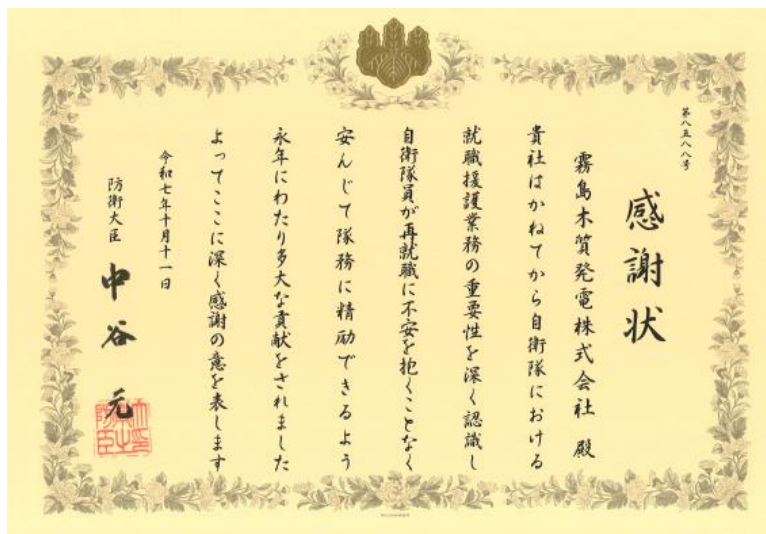 第八五八八号
感謝状
霧島木質発電株式会社 殿
貴社はかねてから自衛隊における
就職援護業務の重要性を深く認識し
自衛隊員が再就職に不安を抱くことなく
安んじて隊務に精励できるよう
永年にわたり多大な貢献をされました
よってここに深く感謝の意を表します
令和七年十月十一日
防衛大臣 中谷 元